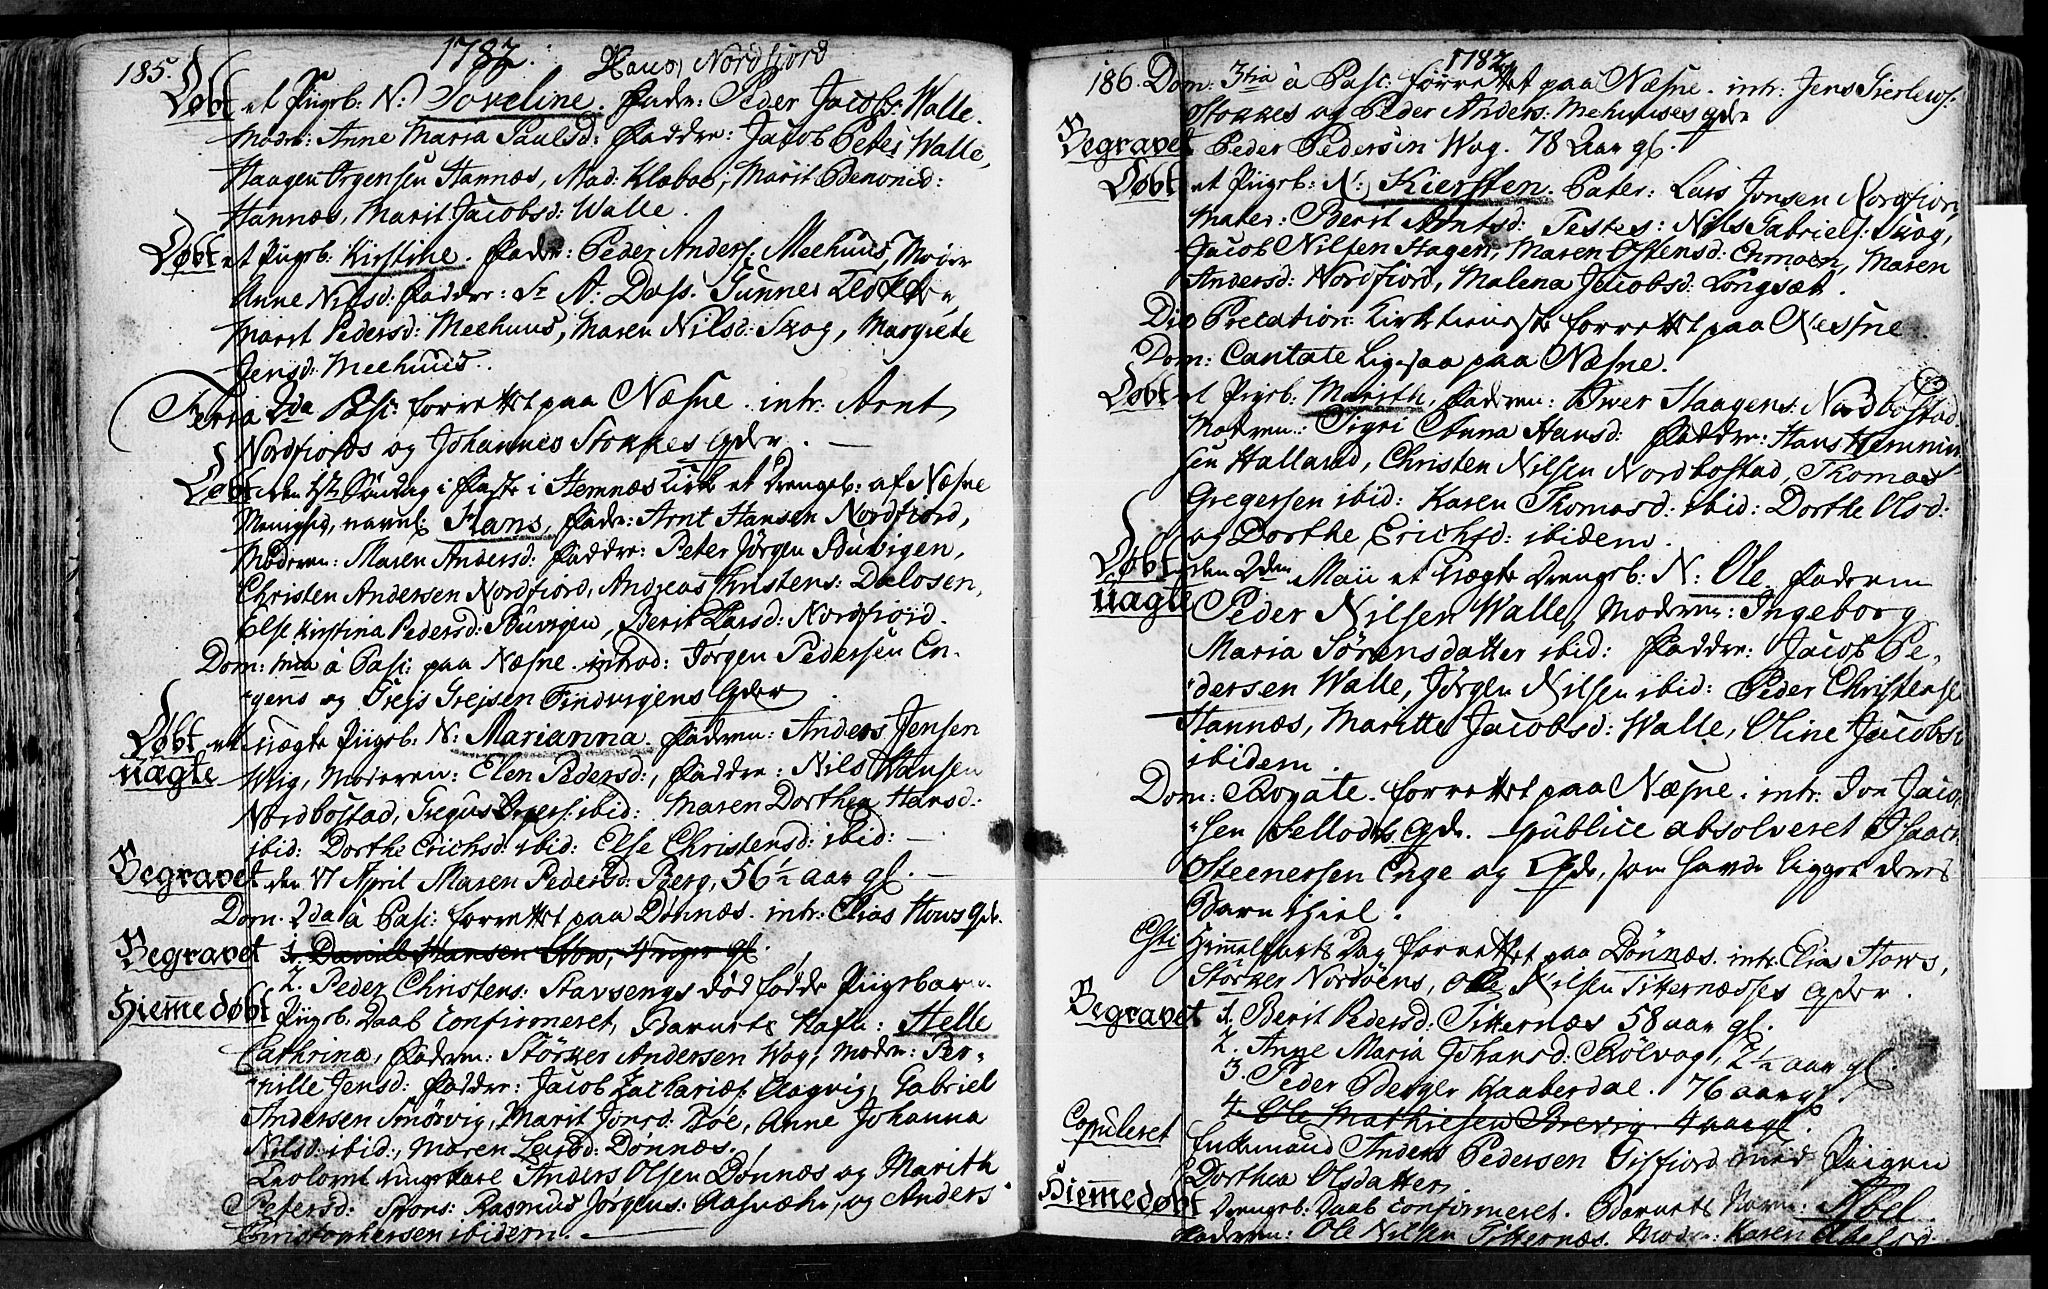 185.
1782.
Hans, Nordfjord
Døbt et Piigeb: N: Foveline. Fadr: Peder Jacobs: Walle.
Modr: Anne Maria Paulsd: Faddre: Jacob Peters Walle,
Haagen Ørgensen Hannæs, Mad: Klæboe, Marit Benonisd:
Hannæs, Marit Jacobsd: Walle.
Døbt et Piigeb: Kirstine. Fadr: Peder Anders: Meehuus, Moder
Anne Nilsd: Faddre: Sr A: Dass. Gunner
Marit Pedersd: Meehuus, Maren Nilsd: Skog, Margrete
Jensd: Meehuus.
Feria 2da Pasc: forrettet paa Næsne. intr: Arnt
Nordfiords og Johannes Stokkes qdr. —
Døbt den 4de Søndag i Faste i Hemnæs Kirke et Drengeb: af Næsne
Menighed, navnl: Hans, Fadr: Arnt Hansen Nordfiord,
Moderen: Maren Andersd: Faddre: Peter Jørgen Buvigen,
Christen Andersen Nordfiord, Andreas Christens: Dalosen,
Else Kirstina Pedersd: Buvigen, Berit Larsd: Nordfiord.
Dom: 1ma à Pasc: paa Næsne. introd: Jørgen Pedersen En-
gens og Greis Greisen Findvigens qdr
Døbt et uægte Piigeb: N: Marianna. Faderen: Anders Jensen
uægte
Wiig, Moderen: Elen Pedersd:, Faddre: Nils Hansen
Nordbostad, Gregus ibid: Maren Dorthea Hansd:
ibid: Dorthe Erichsd: ibid: Else Christensd: ibid: —
Begravet den 17 April Maren Pedersd: Berg, 56½ aar gl. —
Dom. 2da à Pasc: forrettet paa Dønnæs. intr: Elias Hows qdr.
Begravet 1. Daniel Hansen How, 4 uger gl.
2. Peder Christens: Stavsengs død fødde Piigebarn.
Hiemmedøbt Piigeb: Daab confirmeret, Barnets Nafn: Helle
Cathrina, Faderen: Størker Andersen Wog, Modr: Per-
nille Jensd: Faddre: Jacob Zachariæs: Aagvig, Gabriel
Andersen Smørvig, Marit Jonsd: Boe, Anne Johanna
Nilsd: ibid:, Maren Leisd: Dønnæs.
Trolovet ungekarl Anders Olsen Dønnæs og Marith
Petersd: Spons: Rasmus Jørgens: Aasvæhr, og Anders
Christophersen ibidem. —
1782
186. Dom: 3tia à Pasc: forrettet paa Næsne. intr: Jens
Stokkes og Peder Anders: Meehuuses qdr
Begravet Peder Pedersen Wog. 78 Aar gl.
Døbt et Piigeb: N: Kiersten. Pater: Lars Jonsen Nordfior,
Mater: Berit Arntsd: Testes: Nils Gabriels: Skog,
Jacob Nilsen Hagen, Maren Ostensd: Enmoen, Maren
Andersd: Nordfiord, Malena Jacobsd: Longsæt.
Die Precation: Kirketieneste forrettet paa Nesne
Dom: Cantate Ligesaa paa Næsne.
Døbt et Piigeb: Marith, Faderen: Iwer Haagens: Nordbostad
Moderen: Sigri Anna Hansd: Faddre: Hans Hemmin
sen Halland, Christen Nilsen Nordbostad, Thomas
Gregersen ibid: Karen Thomasd: ibid: Dorthe Olsd:
og Dorthe Erichsd: ibidem.
Døbt den 2den Maii et uægte Drengeb: N: Ole. Faderen
uagte Peder Nilsen Walle, Moderen: Ingeborg
Maria Sørensdatter ibid: Faddre: Jacob Pe-
dersen Walle, Jørgen Nilsen ibid: Peder Christense
Hannæs, Maritte Jacobsd: Walle, Oline Jacobsd
ibidem.
Dom: Rogate. forrettet paa Næsne. intr: Jon Jaco-
sen Sellodts qdr. — publice absolveret Isaach
Steenersen Enge og qdr, som havde ligget deres
Barn ihiel.
Christi Himmelfarts Dag forrettet paa Dønnæs. intr: Elias Hows,
Størker Nordøens, Ole Nilsen Titternæsses qdr.
Begravet 1. Berit Pedersd: Titternæs 58 aar gl.
2. Anne Maria Johansd: Rølvog, 2½ aar gl.
3. Peder Berger Kaaberdal. 76 aar gl.
4. Ole Mathiesen Brevig. 4 aar gl.
Copuleret Enkemand Anders Pedersen Gisfiord med Piigen
Dorthea Olsdatter
Hiemmedøbt Drengeb: Daab confirmeret. Barnets Navn: Abel
Faderen: Ole Nilsen Titternæs. Modr: Karen Abelsd: